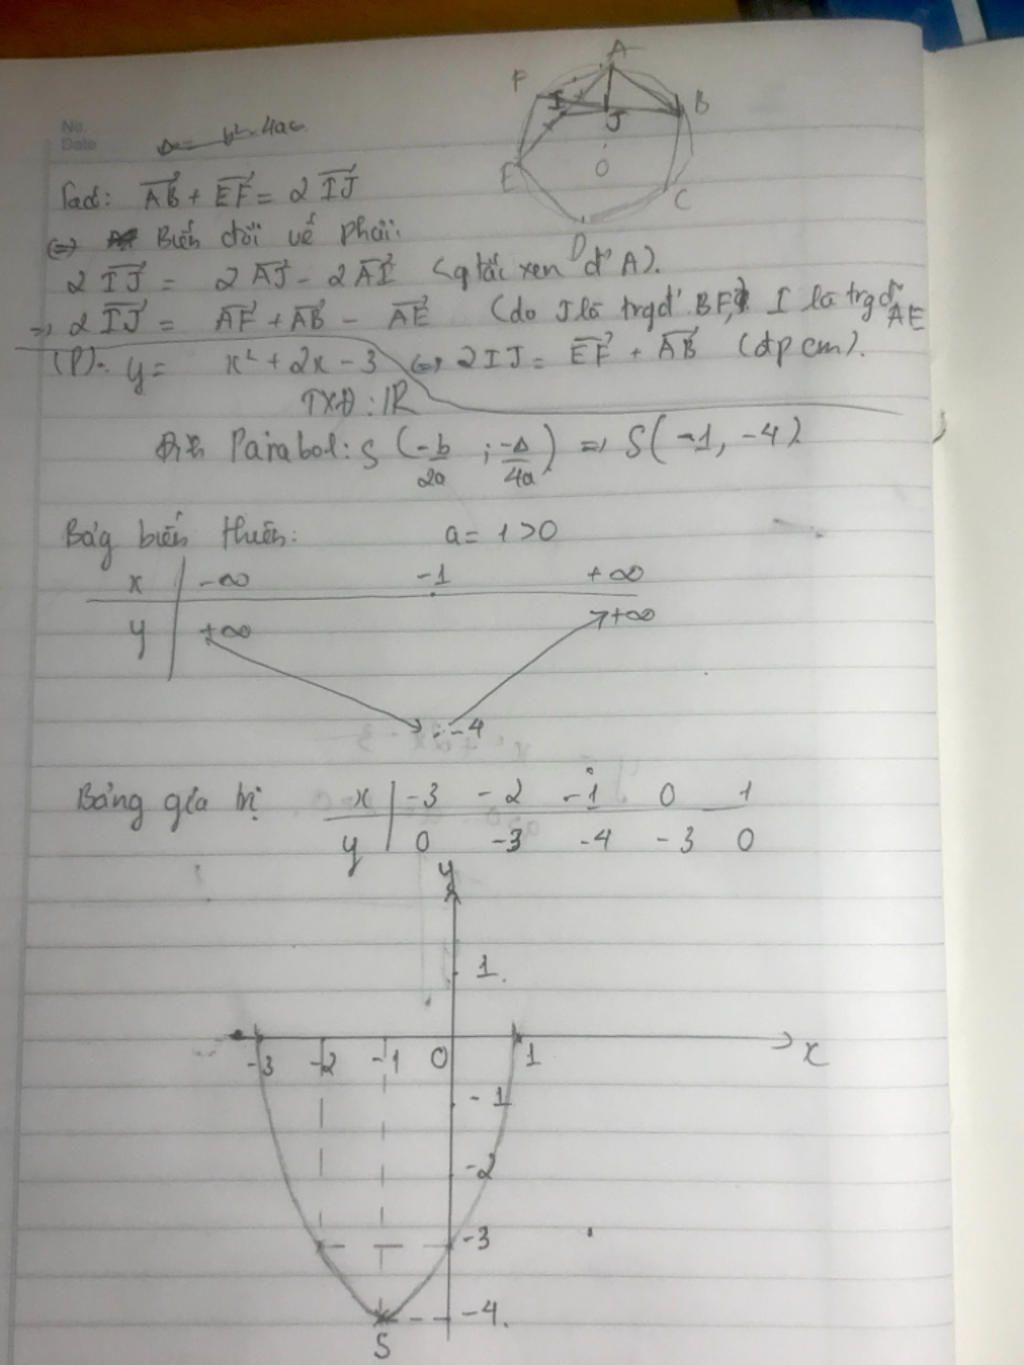 A
F
I
B
J
No.
Date
Δ = b² - 4ac
O
E
C
D
Tacó: AB→ + EF→ = 2 IJ→
(=) Biến đổi vế phải:
2 IJ→ = 2 AJ→ - 2 AI→ (q tắc xen đ' A).
=> 2 IJ→ = AF→ + AB→ - AE→ (do J là trgđ' BF, I là trgđ' AE
(P): y = x² + 2x - 3 (=) 2IJ = EF→ + AB→ (đpcm).
TXĐ : IR
Parabol: S (-b/2a ; -Δ/4a) => S(-1, -4)
Bảg biến thiên: a = 1 > 0
x -∞ -1 +∞
y +∞ +∞
-4
Bảng gía trị x -3 -2 -1 0 1
y 0 -3 -4 -3 0
y
1
-3 -2 -1 0 1 x
-1
-2
-3
-4
S